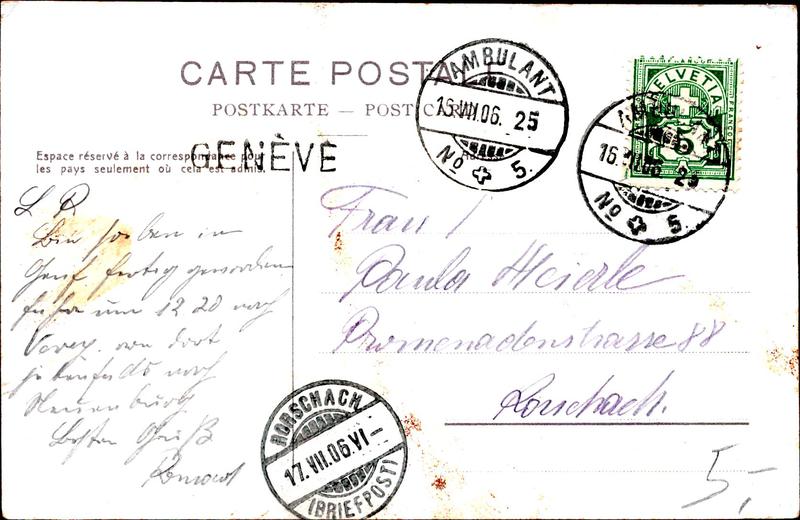 CARTE POSTA
POSTKARTE — POST CAR
AMBULANT
16.VII.06. 25
No 5.
HELVETIA
FRANCO
5
AMBULANT
16.VII.06 25
No 5.
GENÈVE
Espace réservé à la correspondance pour
les pays seulement où cela est admis.
L R
Bin soeben in
Genf fertig geworden
fahre um 12 20 nach
Vevey, von dort
jedenfalls nach
Neuenburg
Besten Gruß
Frau
Paula Heierle
Promenadenstrasse 88
Rorschach.
RORSCHACH
17.VII.06.VI–
(BRIEFPOST)
5,-